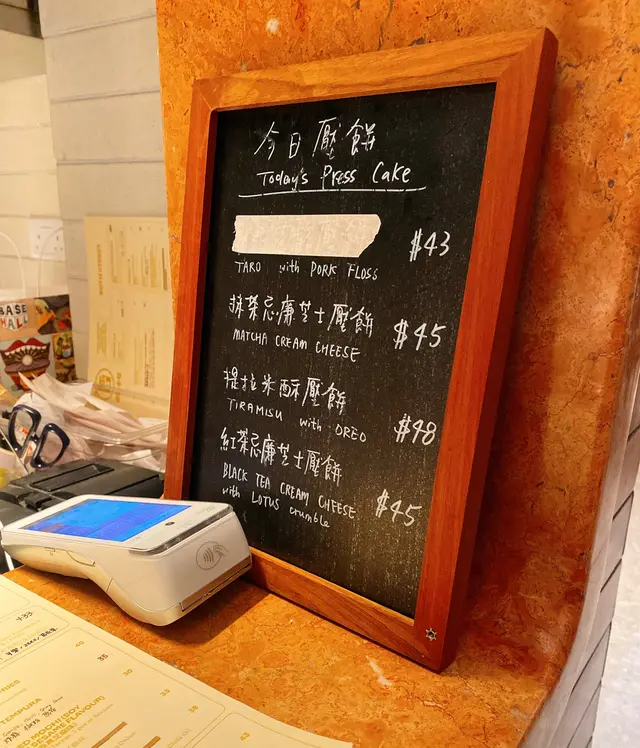 今日壓餅
Today's Press Cake
$43
TARO with PORK FLOSS
抹茶忌廉芝士壓餅
$45
MATCHA CREAM CHEESE
提拉米酥壓餅
TIRAMISU with OREO
$48
紅茶忌廉芝士壓餅
BLACK TEA CREAM CHEESE
$45
with LOTUS crumble
BASE
HALL
40
35
30
TEMPURA
33
38